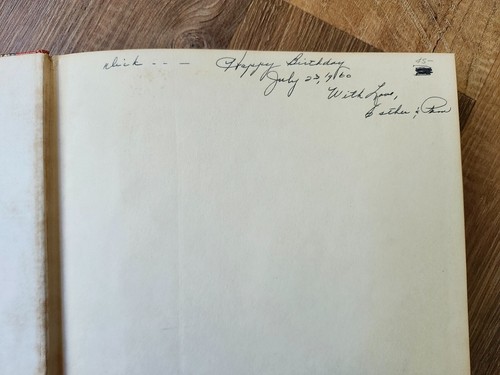 Happy Birthday
July 23, 1960
With Love,
Esther &